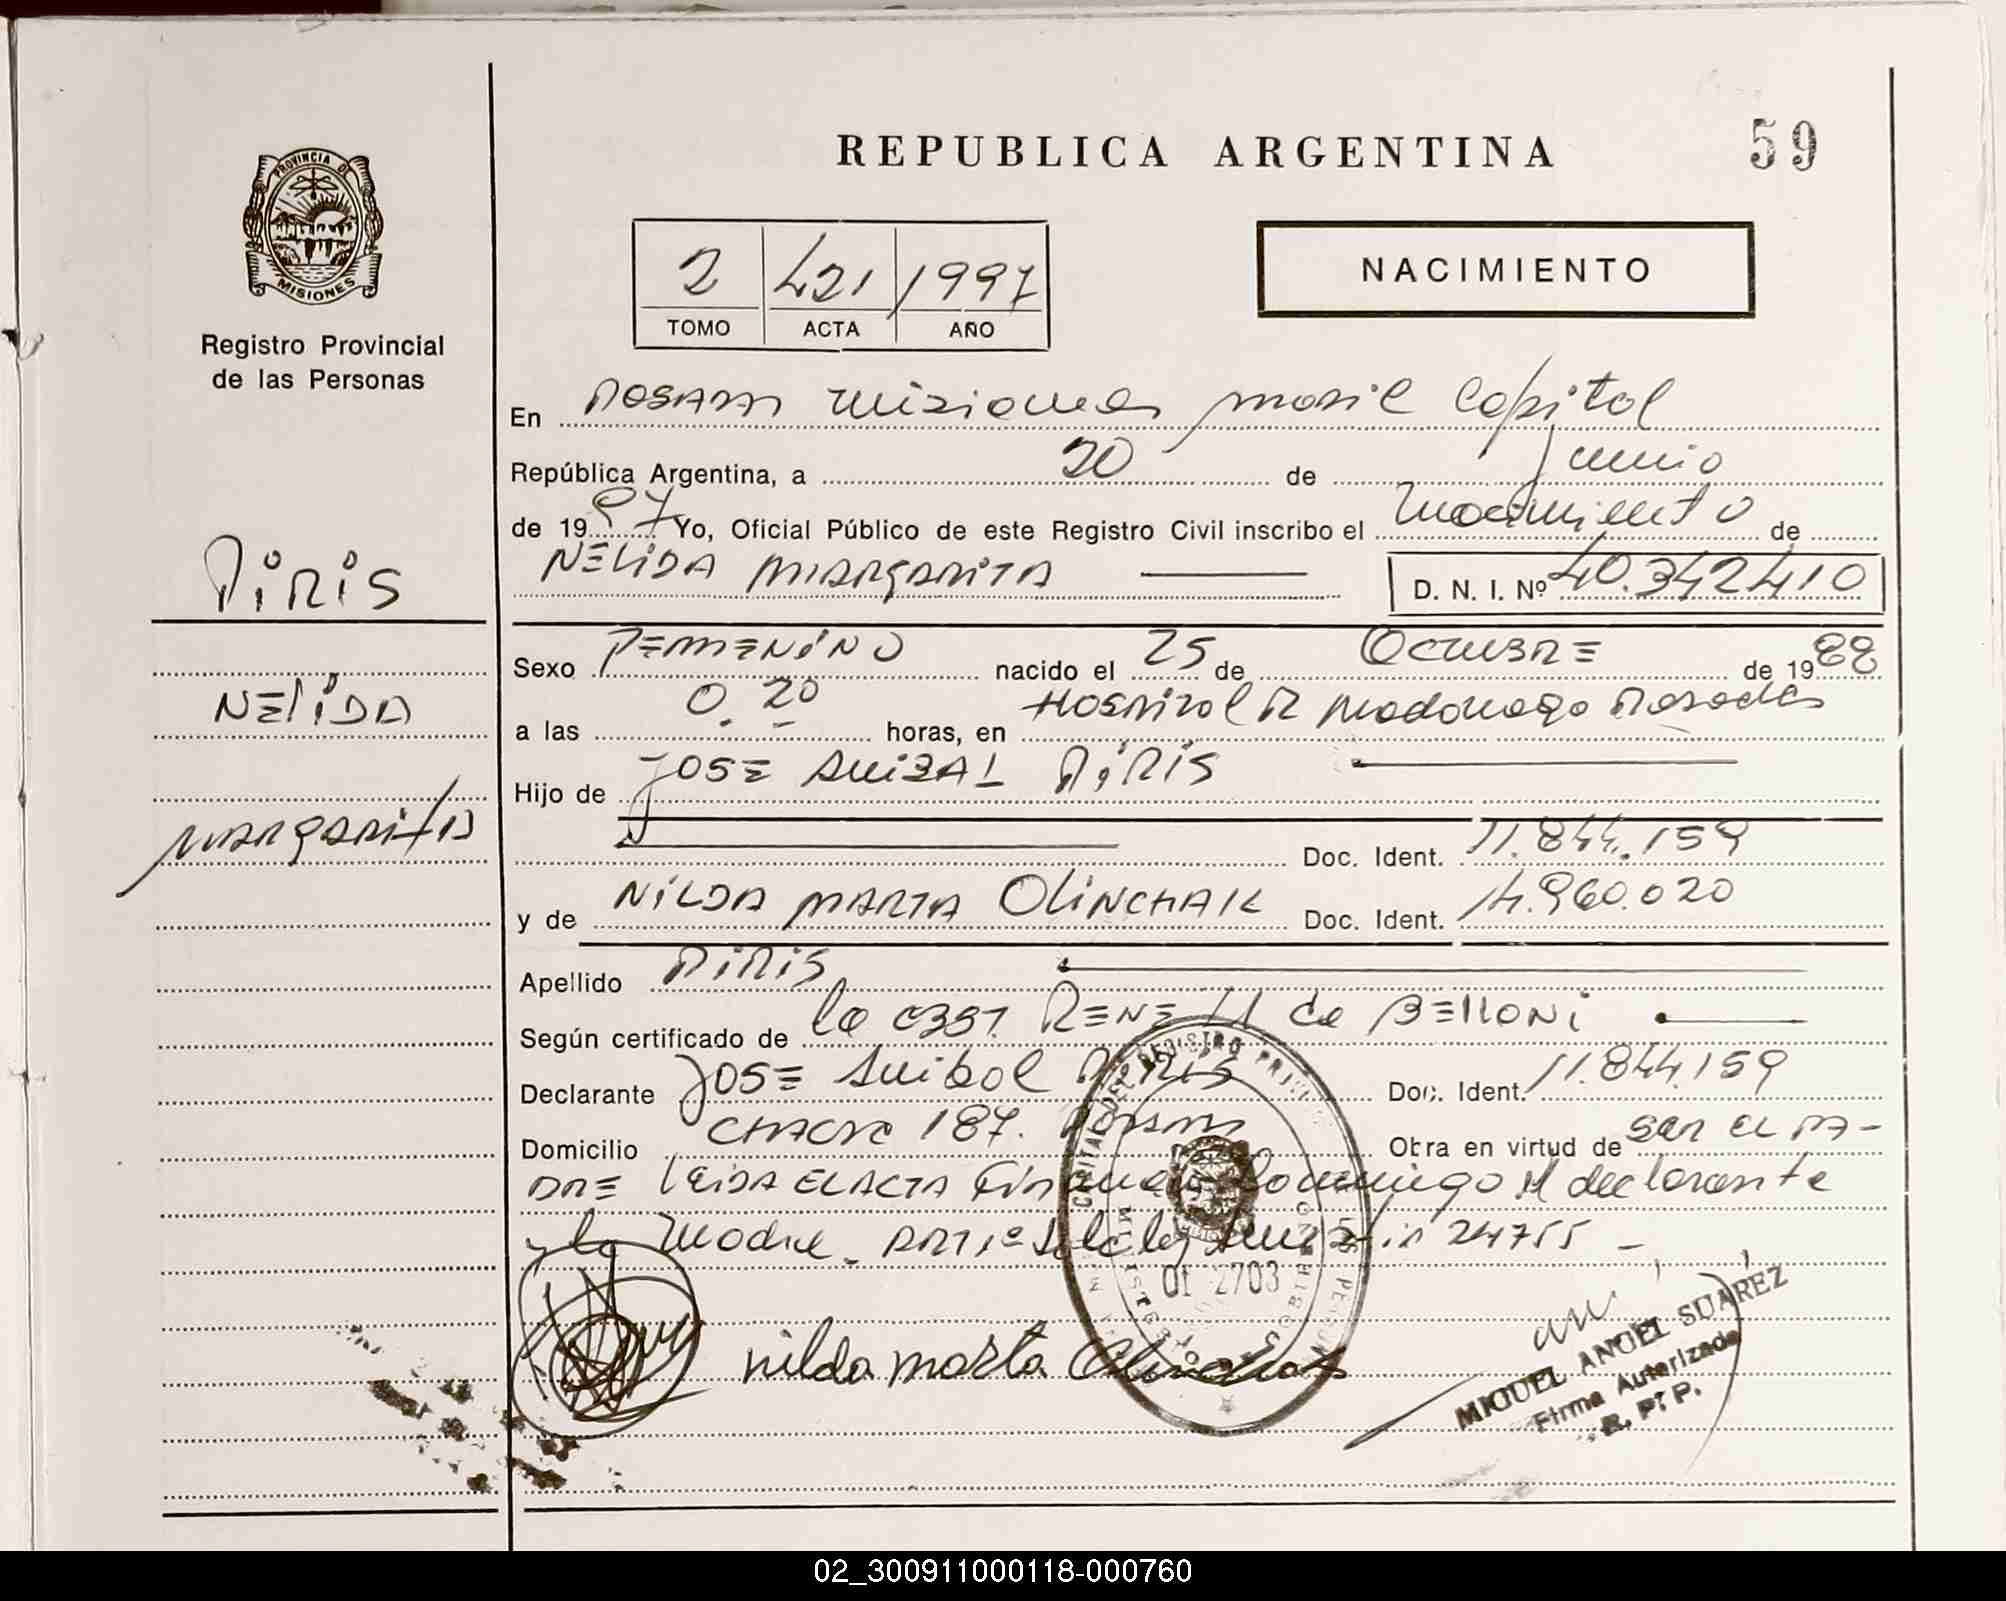 REPUBLICA ARGENTINA
59
PROVINCIA DE
MISIONES
Registro Provincial
de las Personas
2 421 1997
TOMO ACTA AÑO
NACIMIENTO
En Posadas Misiones movil Capital
República Argentina, a 20 de Junio
de 1997 Yo, Oficial Público de este Registro Civil inscribo el nacimiento de
NELIDA MARGARITA D. N. I. Nº 40.342410
PIRIS
NELIDA
MARGARITA
Sexo FEMENINO nacido el 25 de OCTUBRE de 1988
a las 0.20 horas, en HOSPITAL R Madariaga Posadas
Hijo de JOSE ANIBAL PIRIS
Doc. Ident. 11.844.159
y de NILDA MARTA OLINCHAK Doc. Ident. 14.960.020
Apellido PIRIS
Según certificado de la OBST. RENE H de BELLONI
Declarante JOSE Anibal PIRIS Doc. Ident. 11.844.159
Domicilio CHACRA 187. Posadas Obra en virtud de SER EL PA-
DRE LEIDA EL ACTA el declarante
y la Madre _ 24755 -
01 2703
nilda marta Olinchak
MIGUEL ANGEL SUAREZ
Firma Autorizada
R. P. P.
02_300911000118-000760